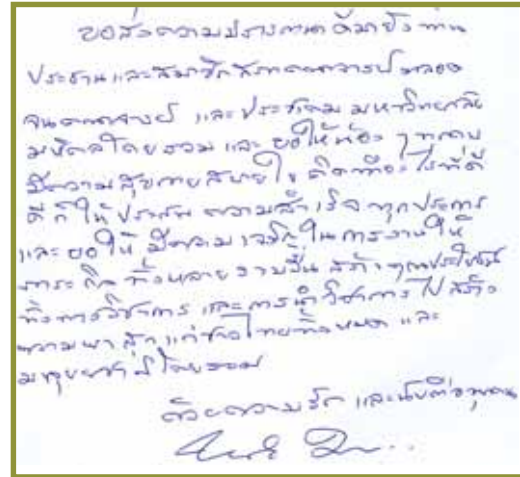 ขอส่งความปรารถนาดีมายังท่าน
ประธานและสมาชิกสภาคณาจารย์ ตลอด
จนคณาจารย์ และประชาคม มหาวิทยาลัย
มหิดลโดยรวม และ ขอให้ท่าน ๆ ทุกคน
มีความสุขกายสบายใจ คิดทำอะไรที่ดี
ดี ก็ให้ประสบ ความสำเร็จ ทุกประการ
และ ขอให้ มีความเจริญในการงานให้
ภาระกิจ ทั้งหลาย ราบรื่น สร้าง คุณประโยชน์
ทั้งการวิชาการ และการนำวิชาการไปสร้าง
ความผาสุก แก่ชาวไทยทั้งหมด และ
มนุษยชาติโดยรวม
ด้วยความรัก และนับถือทุกคน